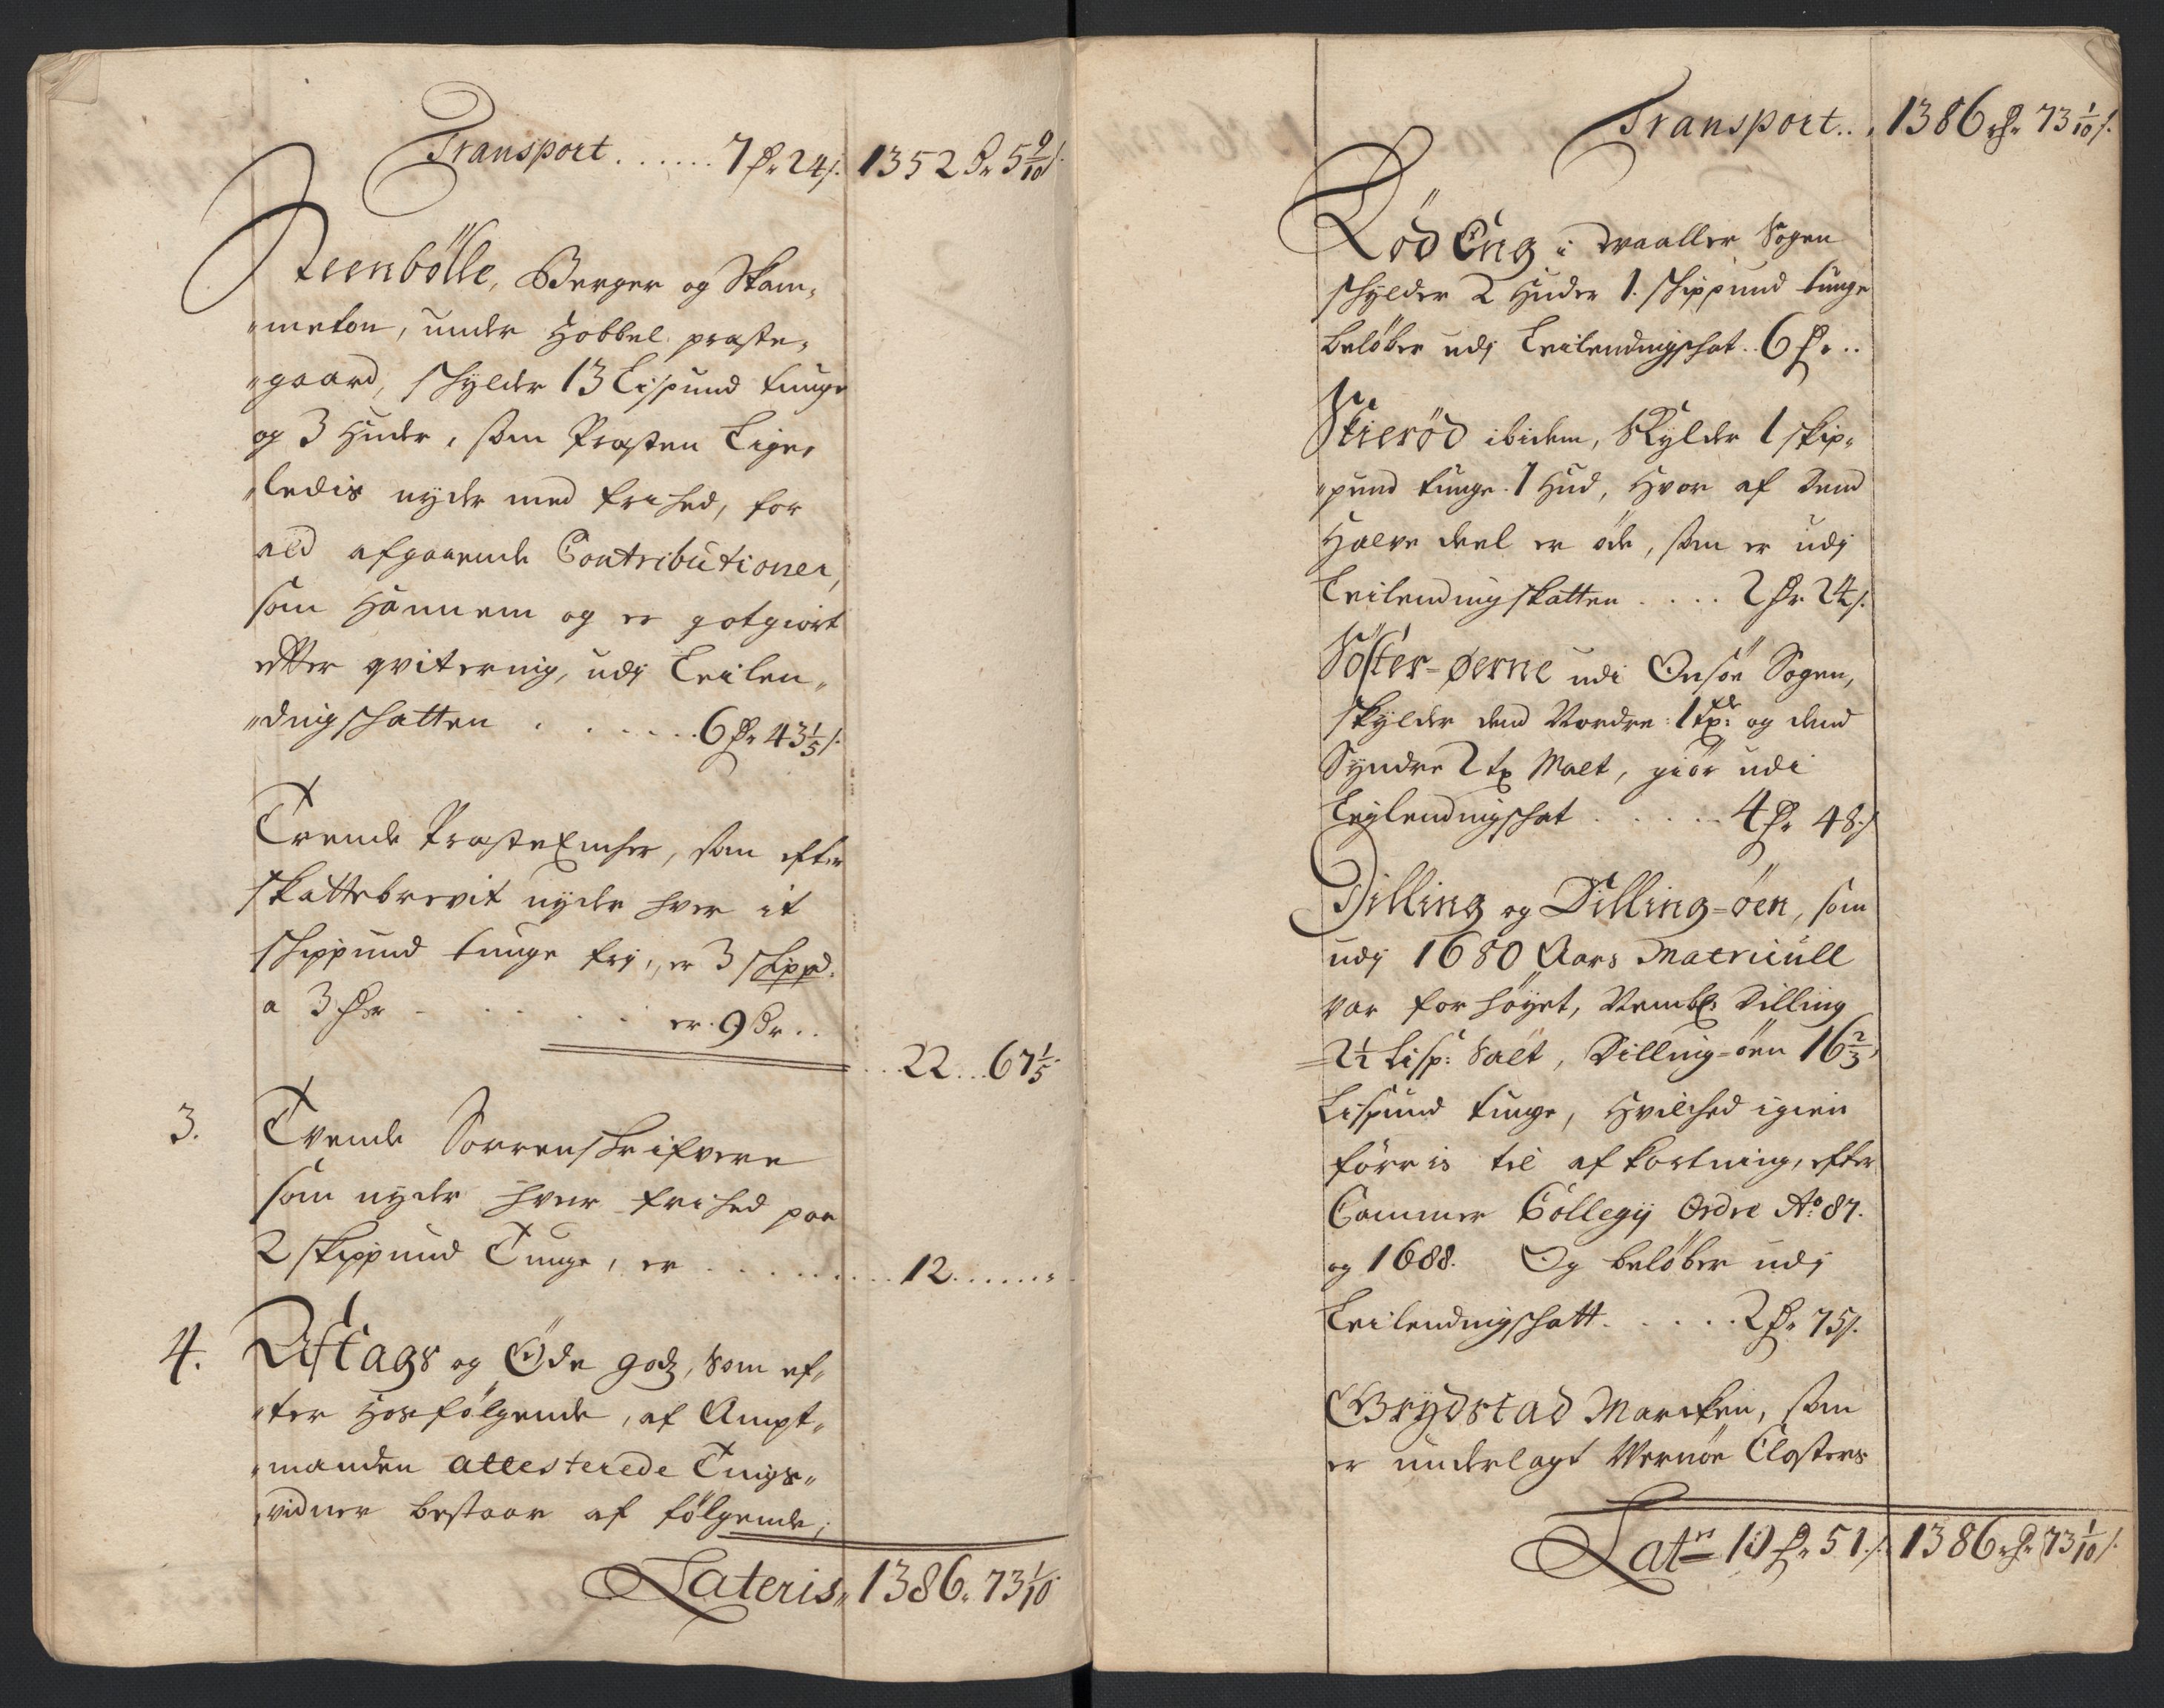 Transport . . . . . . 7 Dr 24 s. 1352 Dr 5 9/10 s.
Steenbölle, Berger og Skam„
„meton, under Hobbel præste„
„gaard, schylder 13 Lispund tunge
og 3 Huder, som Præsten Lige„
„ledis nyder med frihed, for
ald afgaaende Contributioner,
som Hannem og er gotgiort
efter qvitering, udj Leilen„
„dingschatten . . . . . . 6 Dr 43 1/5 s.
Trende Præste Encher, som efter
skattebrevit nyder hver it
schippund tunge frj, er 3 schippd.
a 3 Dr . . . . . er. 9 Dr . .
. . 22 . . 67 1/5
3. Tvende Sorrenskrifvere
som nyder hver frihed paa
2 skippund Tunge, er . . . . . . 12 . . . . . .
4. Uftags og Öde godz, som ef„
„ter Hosfölgende, af Ampt„
„manden attesterede Tings„
„vidner bestaar af fölgende;
Lateris„ 1386„ 73 1/10
Transport . . . 1386 rdr 73 1/10 s.
Röd Eng i Waaller Sogen
schylder 2 Huder 1. schippund tunge
belöber udj Leilendingschat . . 6 Dr . .
Skieröd ibidem, Skylder 1 skip„
„pund tunge. 1 Hud, Hvor af dend
Halve deel er öde, som er udj
Leilendingskatten . . . . 2 Dr 24 s.
Söster-øerne udi Onsöe Sogen,
skylder dend Nordre: 1 tp: og dend
Syndre 2 tp Malt, giör udi
Leylendingschat . . . . . . 4 Dr 48 s.
Dilling og Dilling-öen, som
udj 1680 Aars Matricull
var forhöyet, Nembl: Dilling
2 1/2 Lisp: Salt, Dilling-öen 16 2/3
Lispund tunge, Hvilched igien
förris til afkortning, efter
Cammer Collegij Ordre Ao: 87.
og 1688. Og belöber udj
Leilendingschatt . . . . . 2 Dr 75 s.
Brydstad Marcken, som
er underlagt Wernöe Closters
Latris 10 Dr 51 s. 1386 rdr 73 1/10 s.